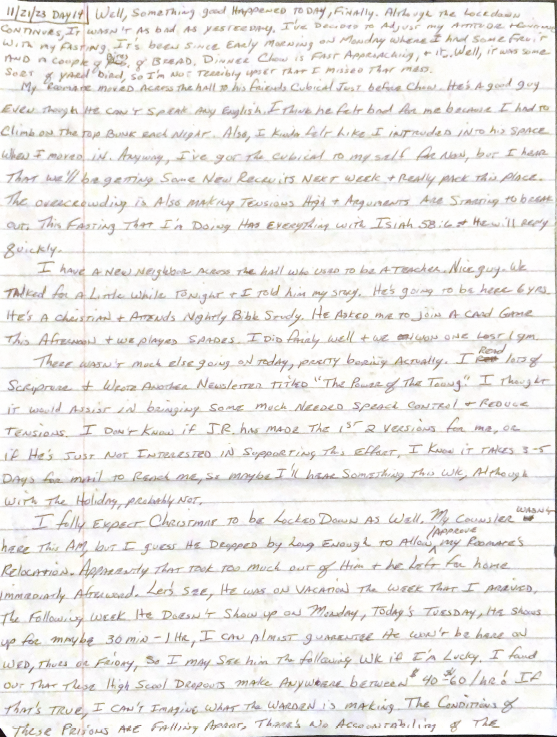 11/21/23 DAY 14 Well, Something good HAPPENED TODAY, Finally. Although The Lockdown
CONTINUES, IT WASN'T AS bad, AS YESTERDAY. I've Decided to Adjust my Attitude & CONTINUE
With my FASTING. IT'S BEEN SINCE EARLY MORNING ON MONDAY WHERE I HAD Some FRUIT
AND A couple of BREAD. DINNER CHOW IS FAST APPROACHING, & IT.. Well, it was some
SORT of yard bird, so I'm NOT TERRIBLY upset That I missed That meal.
My Roomate moved ACROSS The hall to his friends Cubical Just before Chow. He's A good guy
EVEN Though HE CAN'T SPEAK ANY ENGLISH. I Think he felt bad for me because I had to
Climb on The top Bunk each Night. Also, I kinda felt Like I intruded into his SPACE
When I moved in. Anyway, I've got The cubical to my self for Now, but I hear
That we'll be getting Some New Recruits NEXT Week & Really pack This Place.
The overcrowding is Also MAKING TENSIONS High & Arguments ARE STARTING to break
out. This FASTING That I'm Doing HAS Everything with Isiah 58:6 & He will Reply
quickly.
I have A New Neighbor ACROSS The hall who used to be A TEACHER. Nice guy. We
Talked for A Little While Tonight & I told him my story. He's going to be here 6 yrs.
He's A Christian & Attends Nightly Bible Study. He Asked me to join A Card Game
This Afternoon & we played SPADES. I Did fairly well & we won one Lost 1 gm.
There wasn't much else going on today, pretty boring Actually. I Read lots of
Scripture & Wrote Another Newsletter Titled "The Power of The Toung". I Thought
it would Assist in bringing Some much Needed Speach Control & Reduce
TENSIONS. I Don't Know if J.R. has MADE The 1st 2 versions for me, or
if He's Just Not Interested in Supporting This Effort. I Know it takes 3-5
Days for mail to Reach me, so maybe I'll hear Something This Wk, Although
With The Holiday, probably Not.
I fully Expect Christmas to be Locked Down AS Well. My Counsler WASN'T
here This AM, but I guess He Dropped by Long Enough to Allow /APPROVE my Roomate's
Relocation. Apparently That took too much out of Him & he Left for home
Immediatly Afterword. Let's See, He was on VACATION The WEEK That I ARRIVED,
The Following Week He Doesn't Show up on Monday, Today's Tuesday, He shows
up for maybe 30 min - 1 Hr, I CAN Almost guarentee He won't be here on
WED, Thurs or Friday, So I may See him The following Wk if I'm Lucky. I found
out That These High Scool Dropouts make Anywhere between $40-$60/hr! If
That's True, I can't Imagine what The Warden is making. The Conditions of
These Prisons Are Falling Apart, There's No Accountability of The